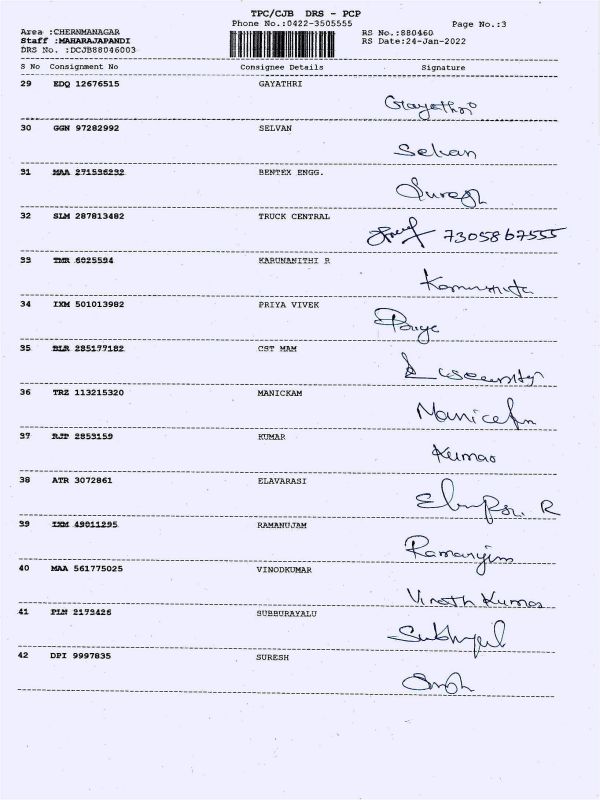 TPC/CJB DRS - PCP
Phone No.:0422-3505555 Page No.:3
Area :CHERNMANAGAR RS No.:880460
Staff :MAHARAJAPANDI RS Date:24-Jan-2022
DRS No. :DCJB88046003
S No Consignment No Consignee Details Signature
29 EDQ 12676515 GAYATHRI
Gayathri
30 GGN 97282992 SELVAN
Selvan
31 MAA 271536232 BENTEX ENGG.
Suresh
32 SLM 287813482 TRUCK CENTRAL
7305867555
33 TMR 6025594 KARUNANITHI R
34 IXM 501013982 PRIYA VIVEK
35 BLR 285177182 CST MAM
36 TRZ 113215320 MANICKAM
37 RJP 2853159 KUMAR
Kumar
38 ATR 3072861 ELAVARASI
39 IXM 49011295 RAMANUJAM
40 MAA 561775025 VINODKUMAR
Vinoth Kumar
41 PLM 2173426 SUBBURAYALU
42 DPI 9997835 SURESH